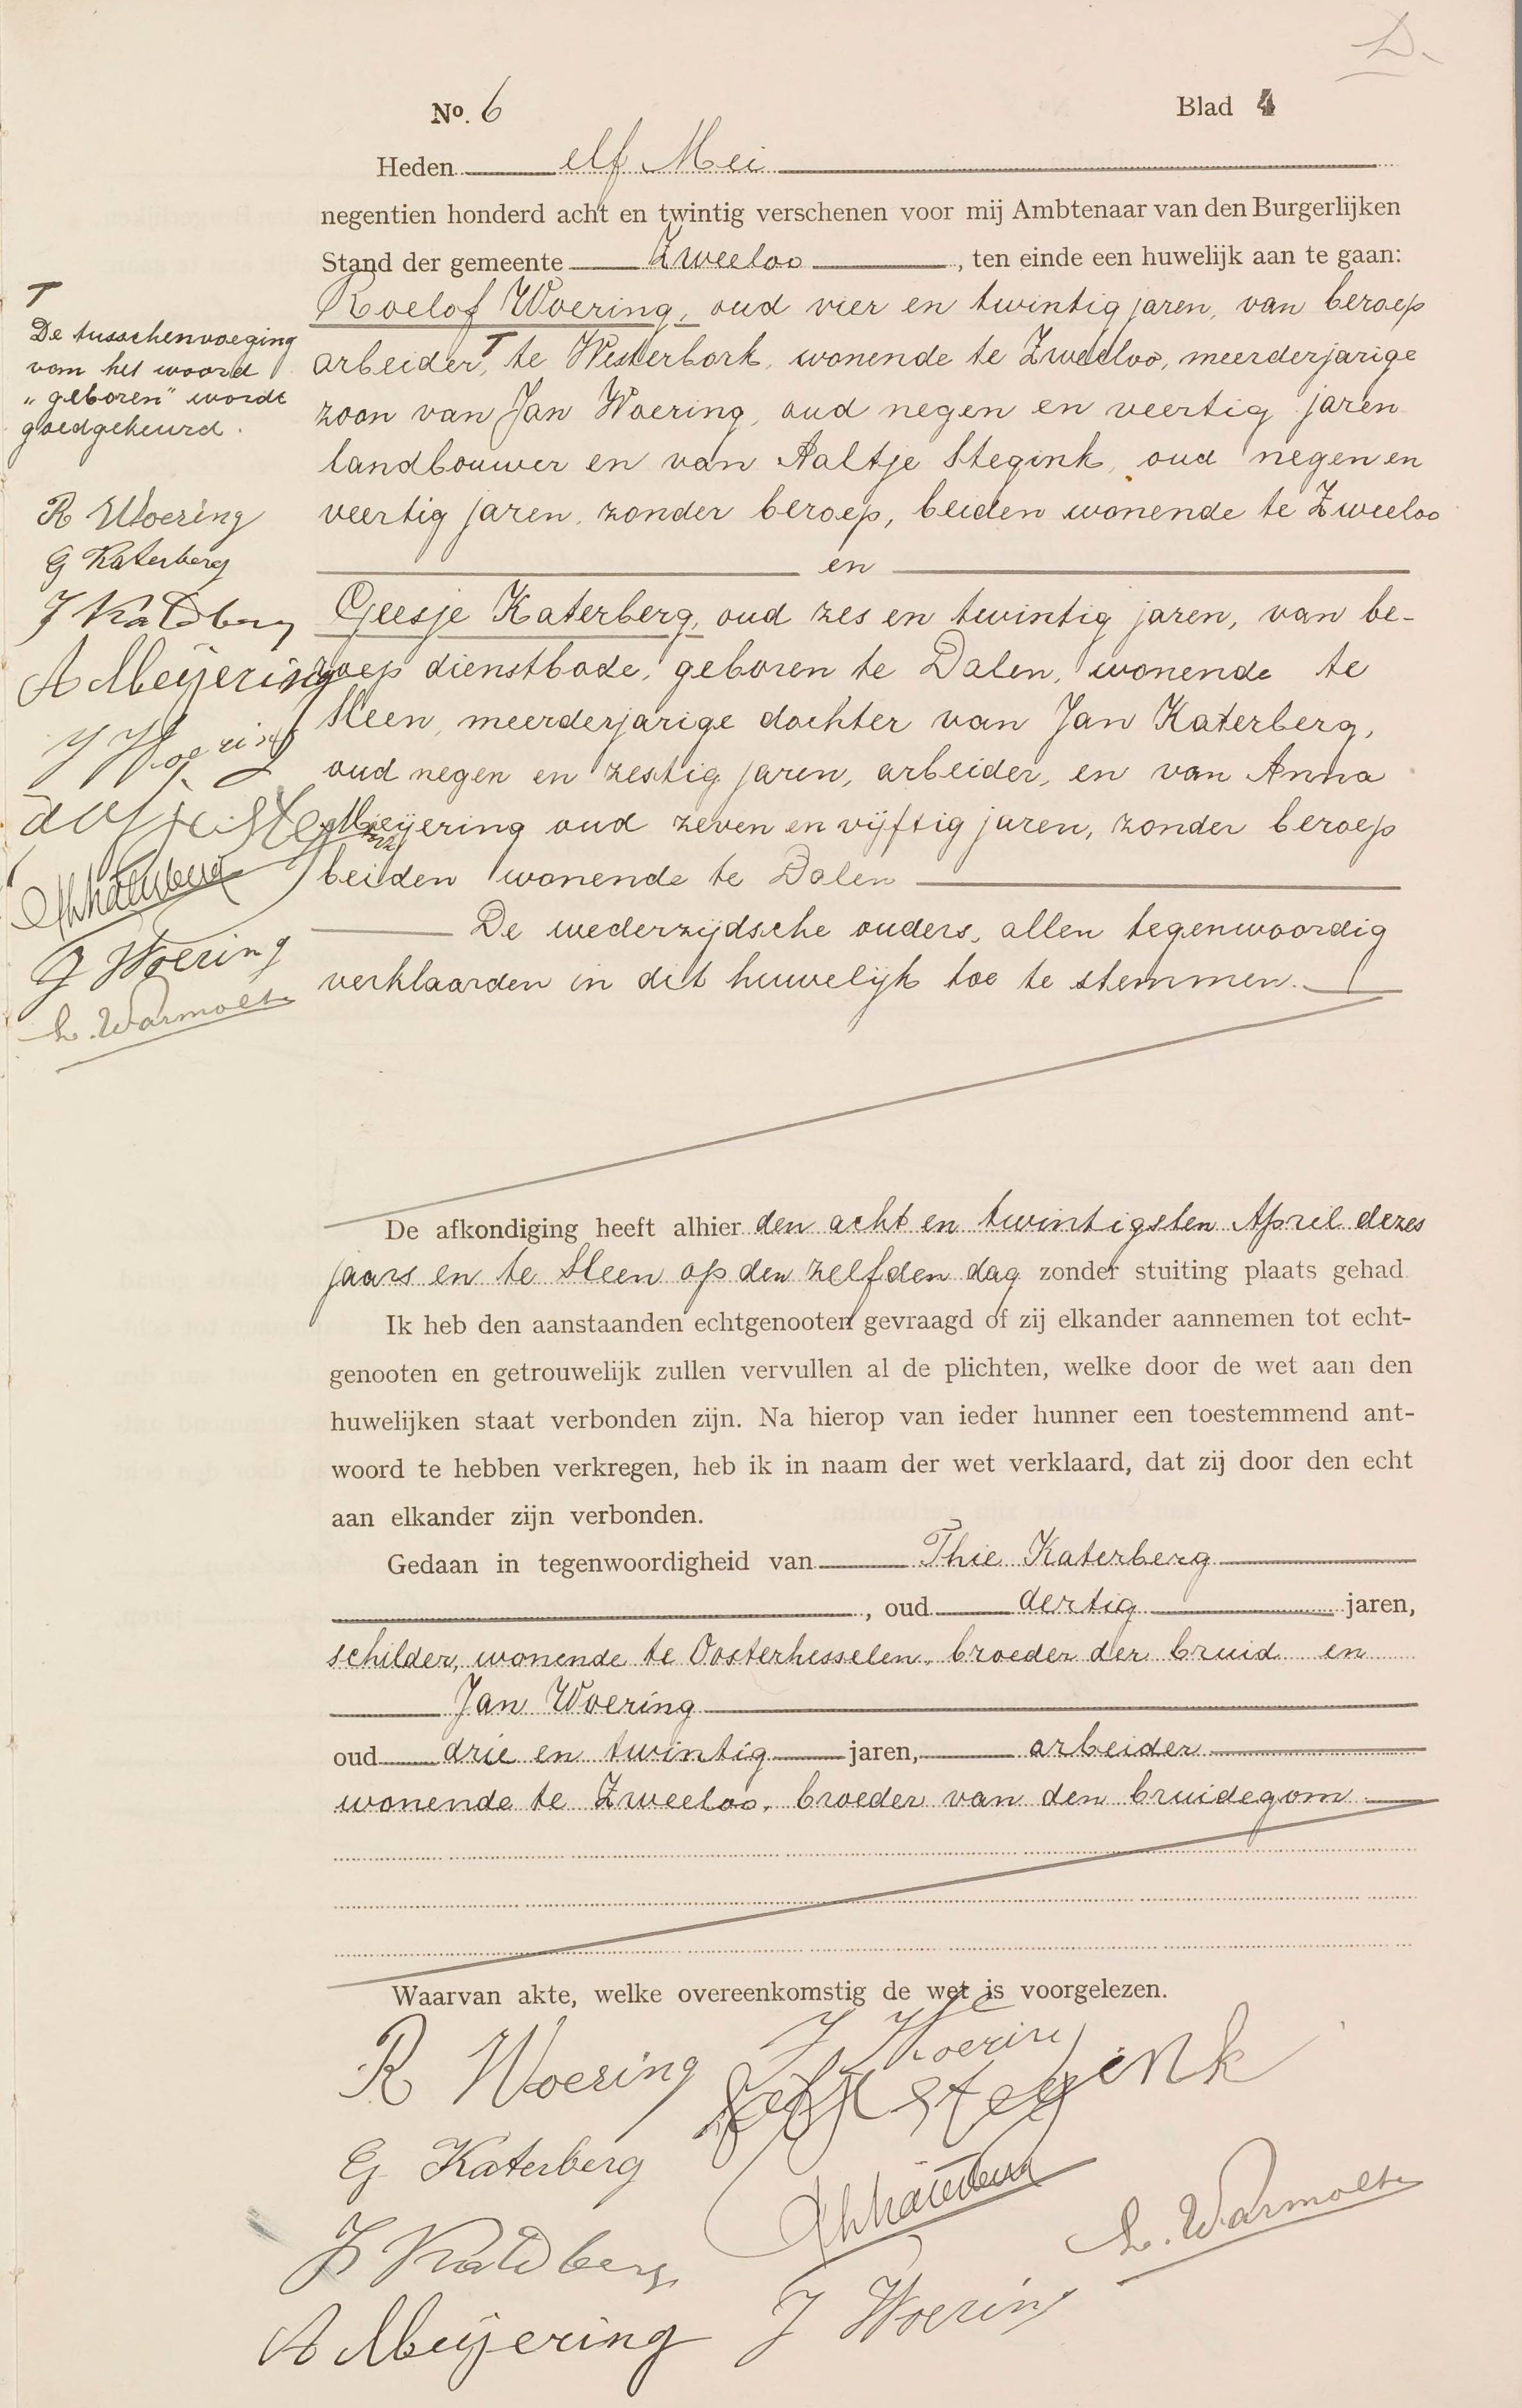 D.
No. 6
Blad 4
Heden elf Mei
negentien honderd acht en twintig verschenen voor mij Ambtenaar van den Burgerlijken
Stand der gemeente Zweeloo, ten einde een huwelijk aan te gaan:
Roelof Woering, oud vier en twintig jaren, van beroep
arbeider, T te Westerbork, wonende te Zweeloo, meerderjarige
zoon van Jan Woering, oud negen en veertig jaren
landbouwer en van Aaltje Stegink, oud negen en
veertig jaren, zonder beroep, beiden wonende te Zweeloo
en
Geesje Katerberg, oud zes en twintig jaren, van be-
roep dienstbode, geboren te Dalen, wonende te
Sleen, meerderjarige dochter van Jan Katerberg,
oud negen en zestig jaren, arbeider, en van Anna
Meijering oud zeven en vijftig jaren, zonder beroep
beiden wonende te Dalen
De wederzijdsche ouders, allen tegenwoordig
verklaarden in dit huwelijk toe te stemmen.
T
De tusschenvoeging
van het woord
"geboren" wordt
goedgekeurd.
R Woering
G Katerberg
J Katerberg
A Meijering
J Woering
J Woering
L. Warmolts
De afkondiging heeft alhier den acht en twintigsten April dezes
jaars en te Sleen op den zelfden dag zonder stuiting plaats gehad
Ik heb den aanstaanden echtgenooten gevraagd of zij elkander aannemen tot echt-
genooten en getrouwelijk zullen vervullen al de plichten, welke door de wet aan den
huwelijken staat verbonden zijn. Na hierop van ieder hunner een toestemmend ant-
woord te hebben verkregen, heb ik in naam der wet verklaard, dat zij door den echt
aan elkander zijn verbonden.
Gedaan in tegenwoordigheid van Thie Katerberg
, oud dertig jaren,
schilder, wonende te Oosterhesselen, broeder der bruid en
Jan Woering
oud drie en twintig jaren, arbeider
wonende te Zweeloo, broeder van den bruidegom
Waarvan akte, welke overeenkomstig de wet is voorgelezen.
R Woering
J Woering
Stegink
G Katerberg
Th Katerberg
L. Warmolts
J Katerberg
A Meijering
J Woering